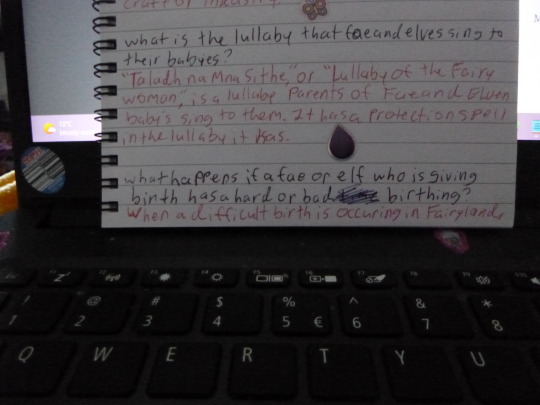 craft or industry
what is the lullaby that fae and elves sing to
their babyes?
"Taladh na Mna Sithe," or "Lullaby of the Fairy
woman," is a lullaby Parents of Fae and Elven
baby's sing to them. It has a protection spell
in the lullaby it has.
what happens if a fae or elf who is giving
birth has a hard or bad birthing?
When a difficult birth is occuring in Fairyland,
! @ # $ % ^ & *
1 2 3 4 5 € 6 7 8
Q W E R T Y U